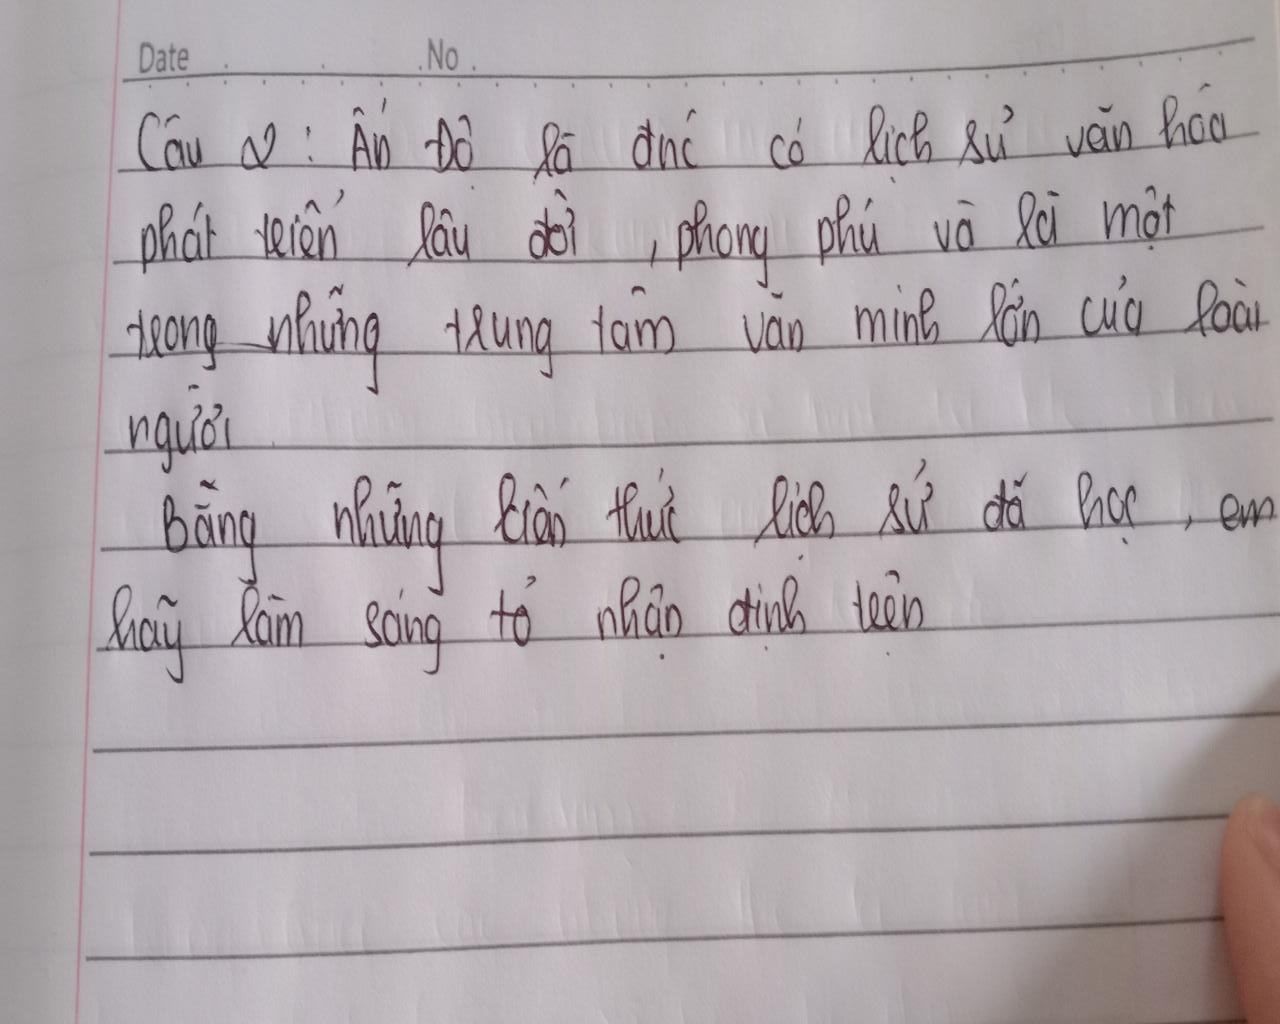 Date No.
Câu 2: Ấn Độ là đnc có lịch sử văn hóa
phát triển lâu đời, phong phú và là một
trong những trung tâm văn minh lớn của loài
người
Bằng những kiến thức lịch sử đã học, em
hãy làm sáng tỏ nhận định trên